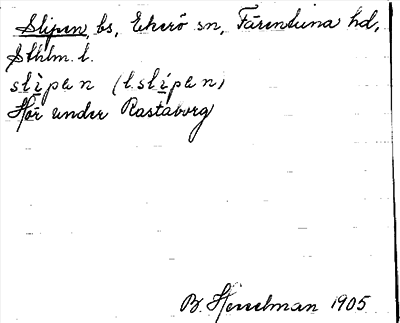 Slipen, bs, Ekerö sn, Färentuna hd,
Sthlm. l.
slipan (l. slipan)
Hör under Rastaborg
B. Hesselman 1905